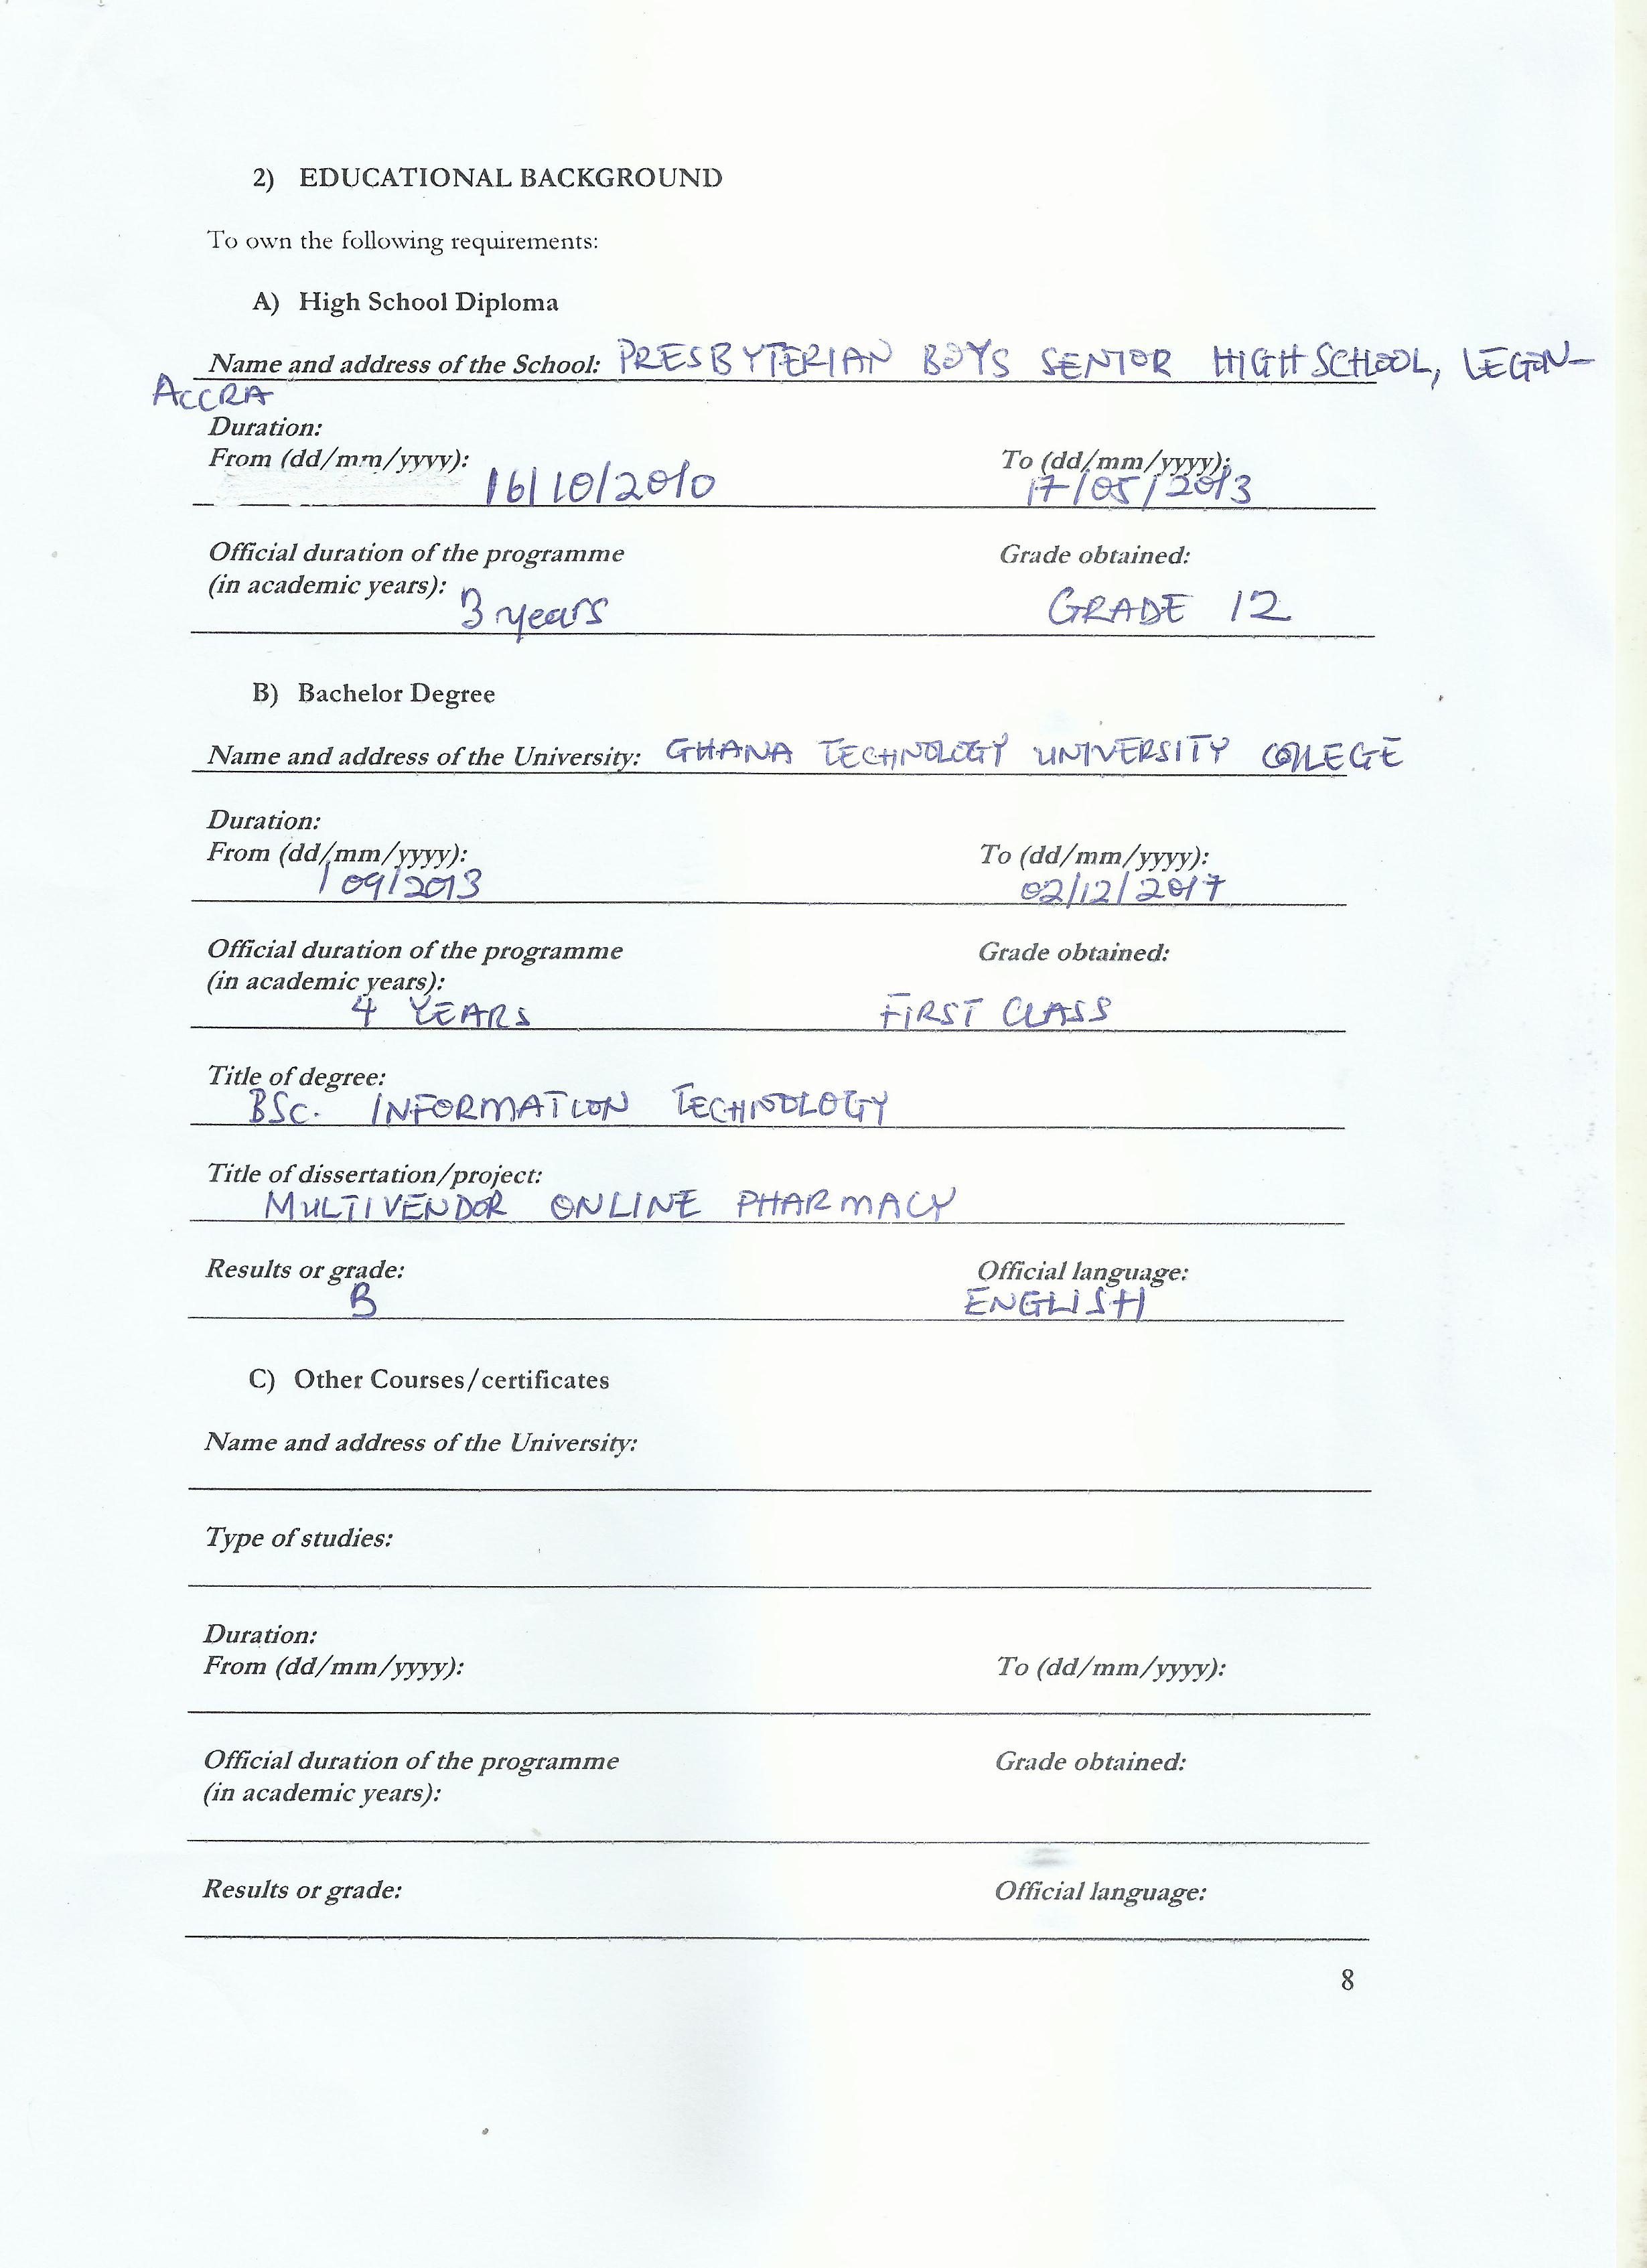 2) EDUCATIONAL BACKGROUND
To own the following requirements:
A) High School Diploma
Name and address of the School: PRESBYTERIAN BOYS SENIOR HIGH SCHOOL, LEGON-
ACCRA
Duration:
From (dd/mm/yyyy): To (dd/mm/yyyy):
16/10/2010 17/05/2013
Official duration of the programme Grade obtained:
(in academic years):
3 years GRADE 12
B) Bachelor Degree
Name and address of the University: GHANA TECHNOLOGY UNIVERSITY COLLEGE
Duration:
From (dd/mm/yyyy): To (dd/mm/yyyy):
/09/2013 02/12/2017
Official duration of the programme Grade obtained:
(in academic years):
4 YEARS FIRST CLASS
Title of degree:
BSc. INFORMATION TECHNOLOGY
Title of dissertation/project:
MULTIVENDOR ONLINE PHARMACY
Results or grade: Official language:
B ENGLISH
C) Other Courses/certificates
Name and address of the University:
Type of studies:
Duration:
From (dd/mm/yyyy): To (dd/mm/yyyy):
Official duration of the programme Grade obtained:
(in academic years):
Results or grade: Official language:
8